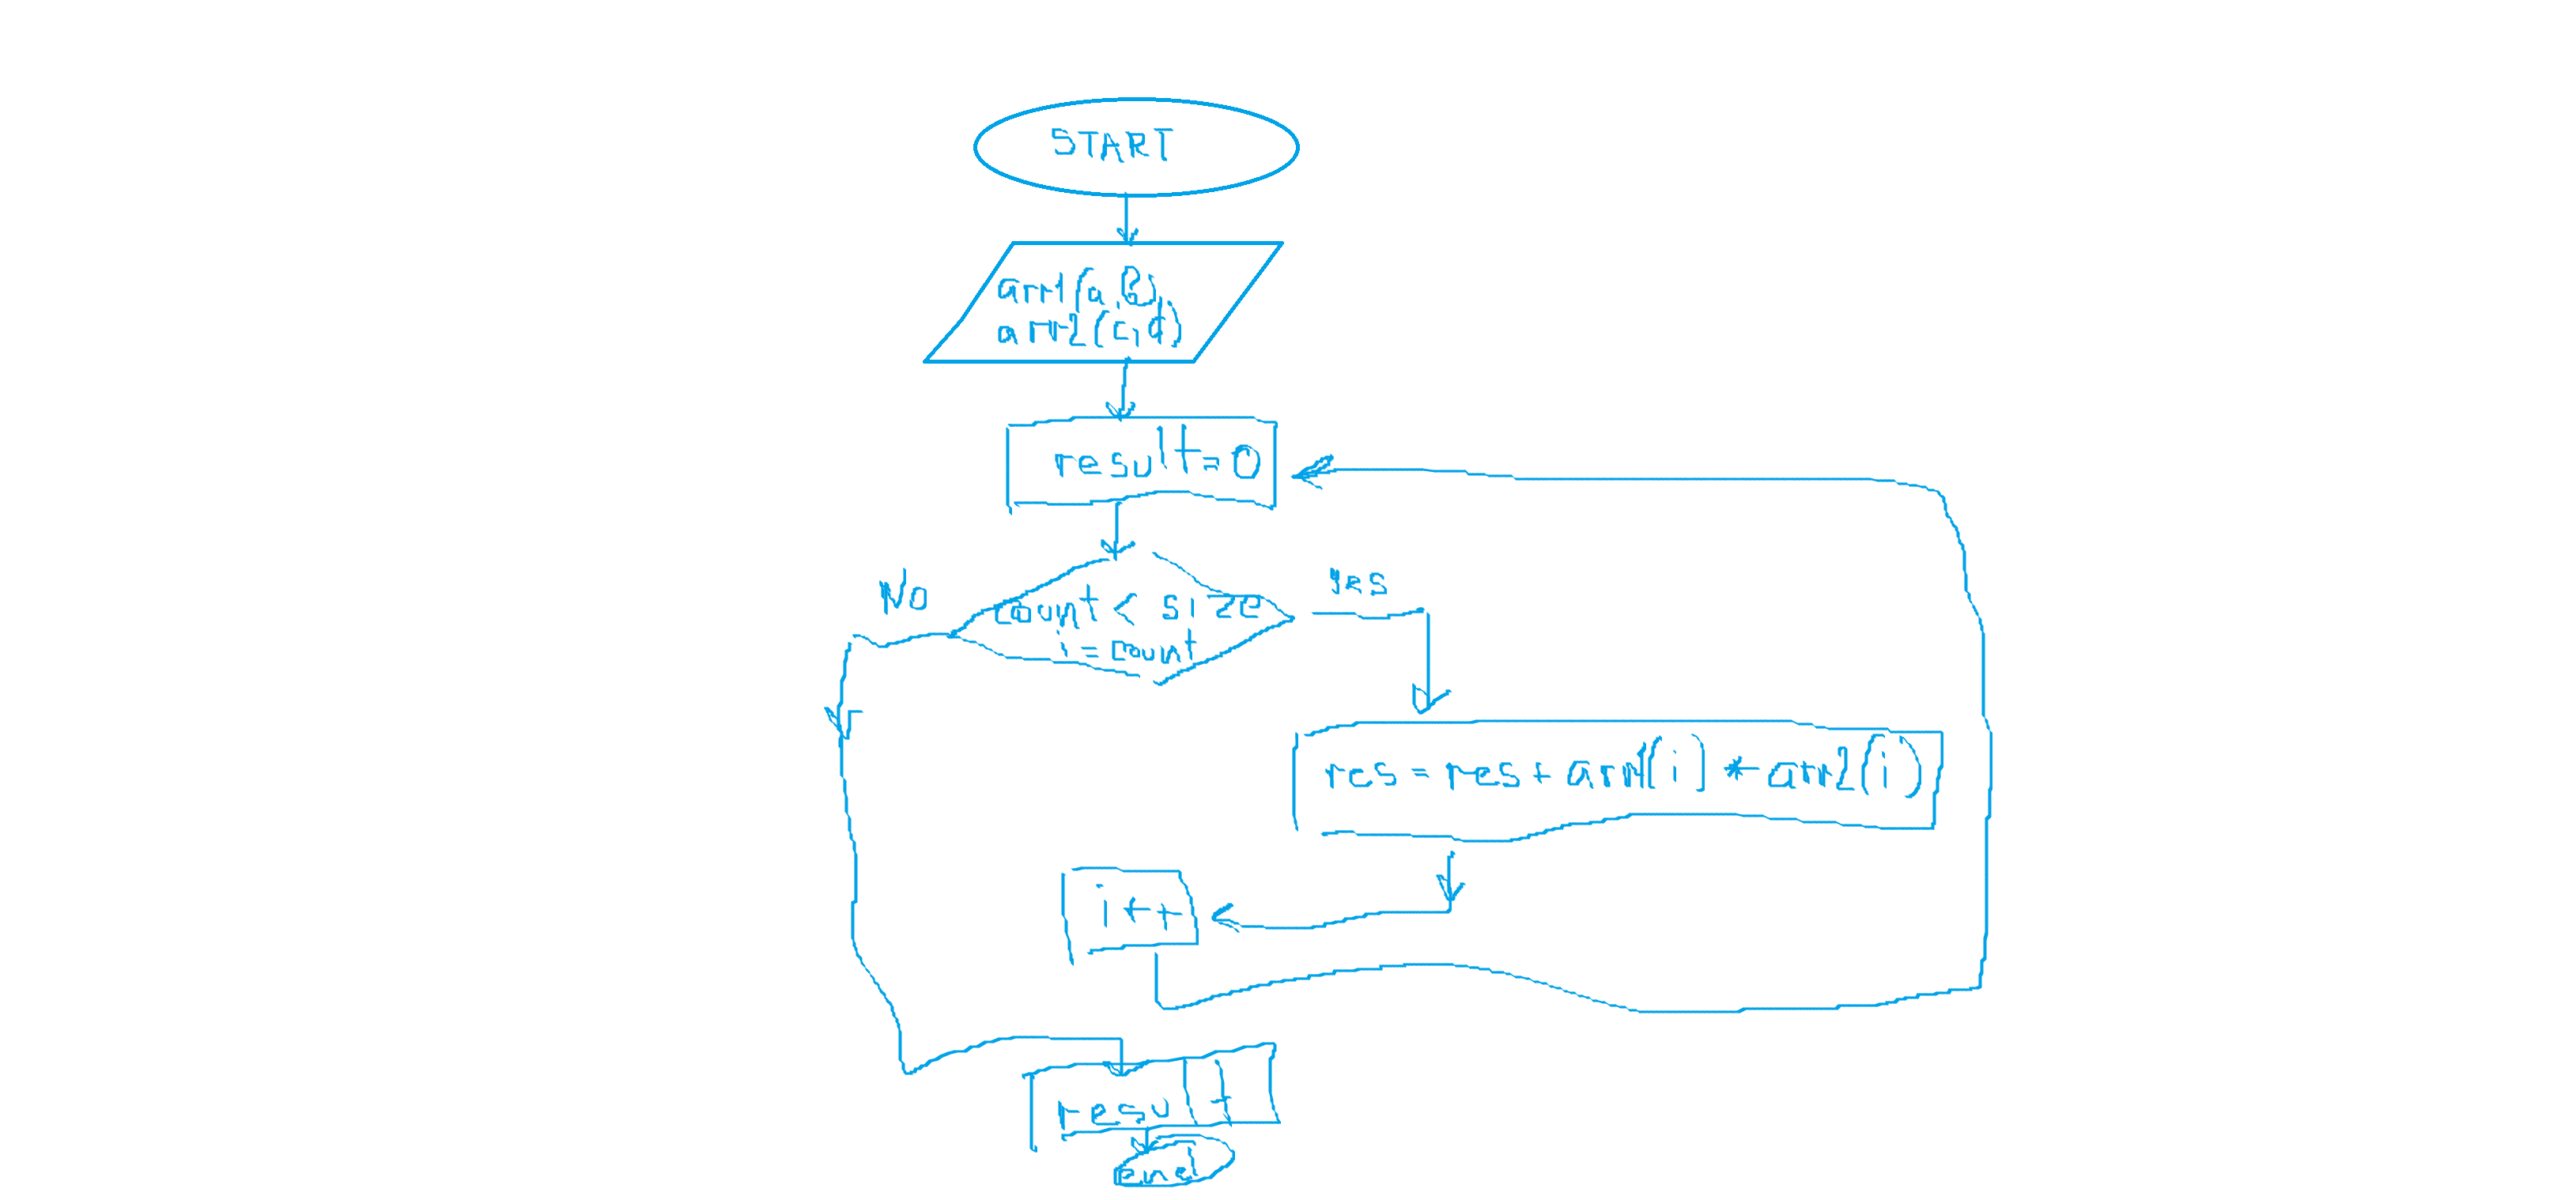 START
arr1(a,b),
arr2(c,d)
result=0
No
yes
count < size
i = count
res = res + arr1(i) * arr2(i)
i++
result
end